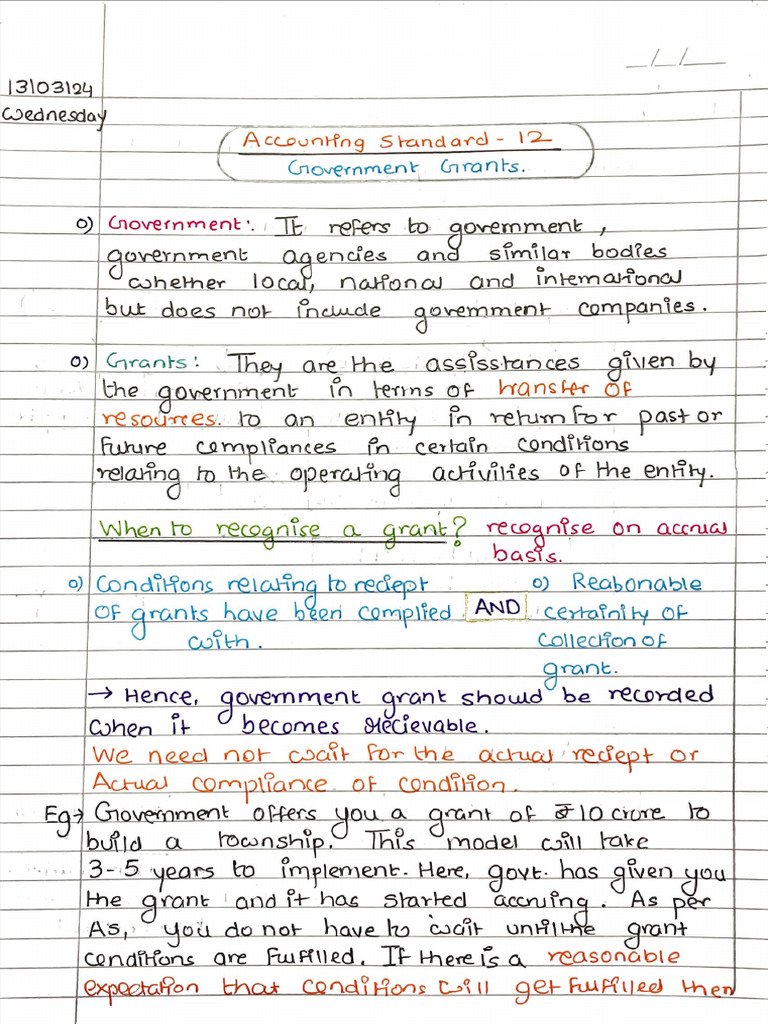 __/__/__
13/03/24
Wednesday
Accounting Standard - 12
Government Grants.
o) Government: It refers to government,
government agencies and similar bodies
whether local, national and international
but does not include government companies.
o) Grants: They are the assisstances given by
the government in terms of transfer of
resources. to an entity in return for past or
future compliances in certain conditions
relating to the operating activities of the entity.
When to recognise a grant? recognise on accrual
basis.
o) Conditions relating to reciept
of grants have been complied
with.
AND
o) Reabonable
certainity of
collection of
grant.
→ Hence, government grant should be recorded
when it becomes recievable.
We need not wait for the actual reciept or
Actual compliance of condition.
Eg→ Government offers you a grant of ₹10 crore to
build a township. This model will take
3-5 years to implement. Here, govt. has given you
the grant and it has started accruing. As per
AS, you do not have to wait until the grant
conditions are fulfilled. If there is a reasonable
expectation that conditions will get fulfilled then